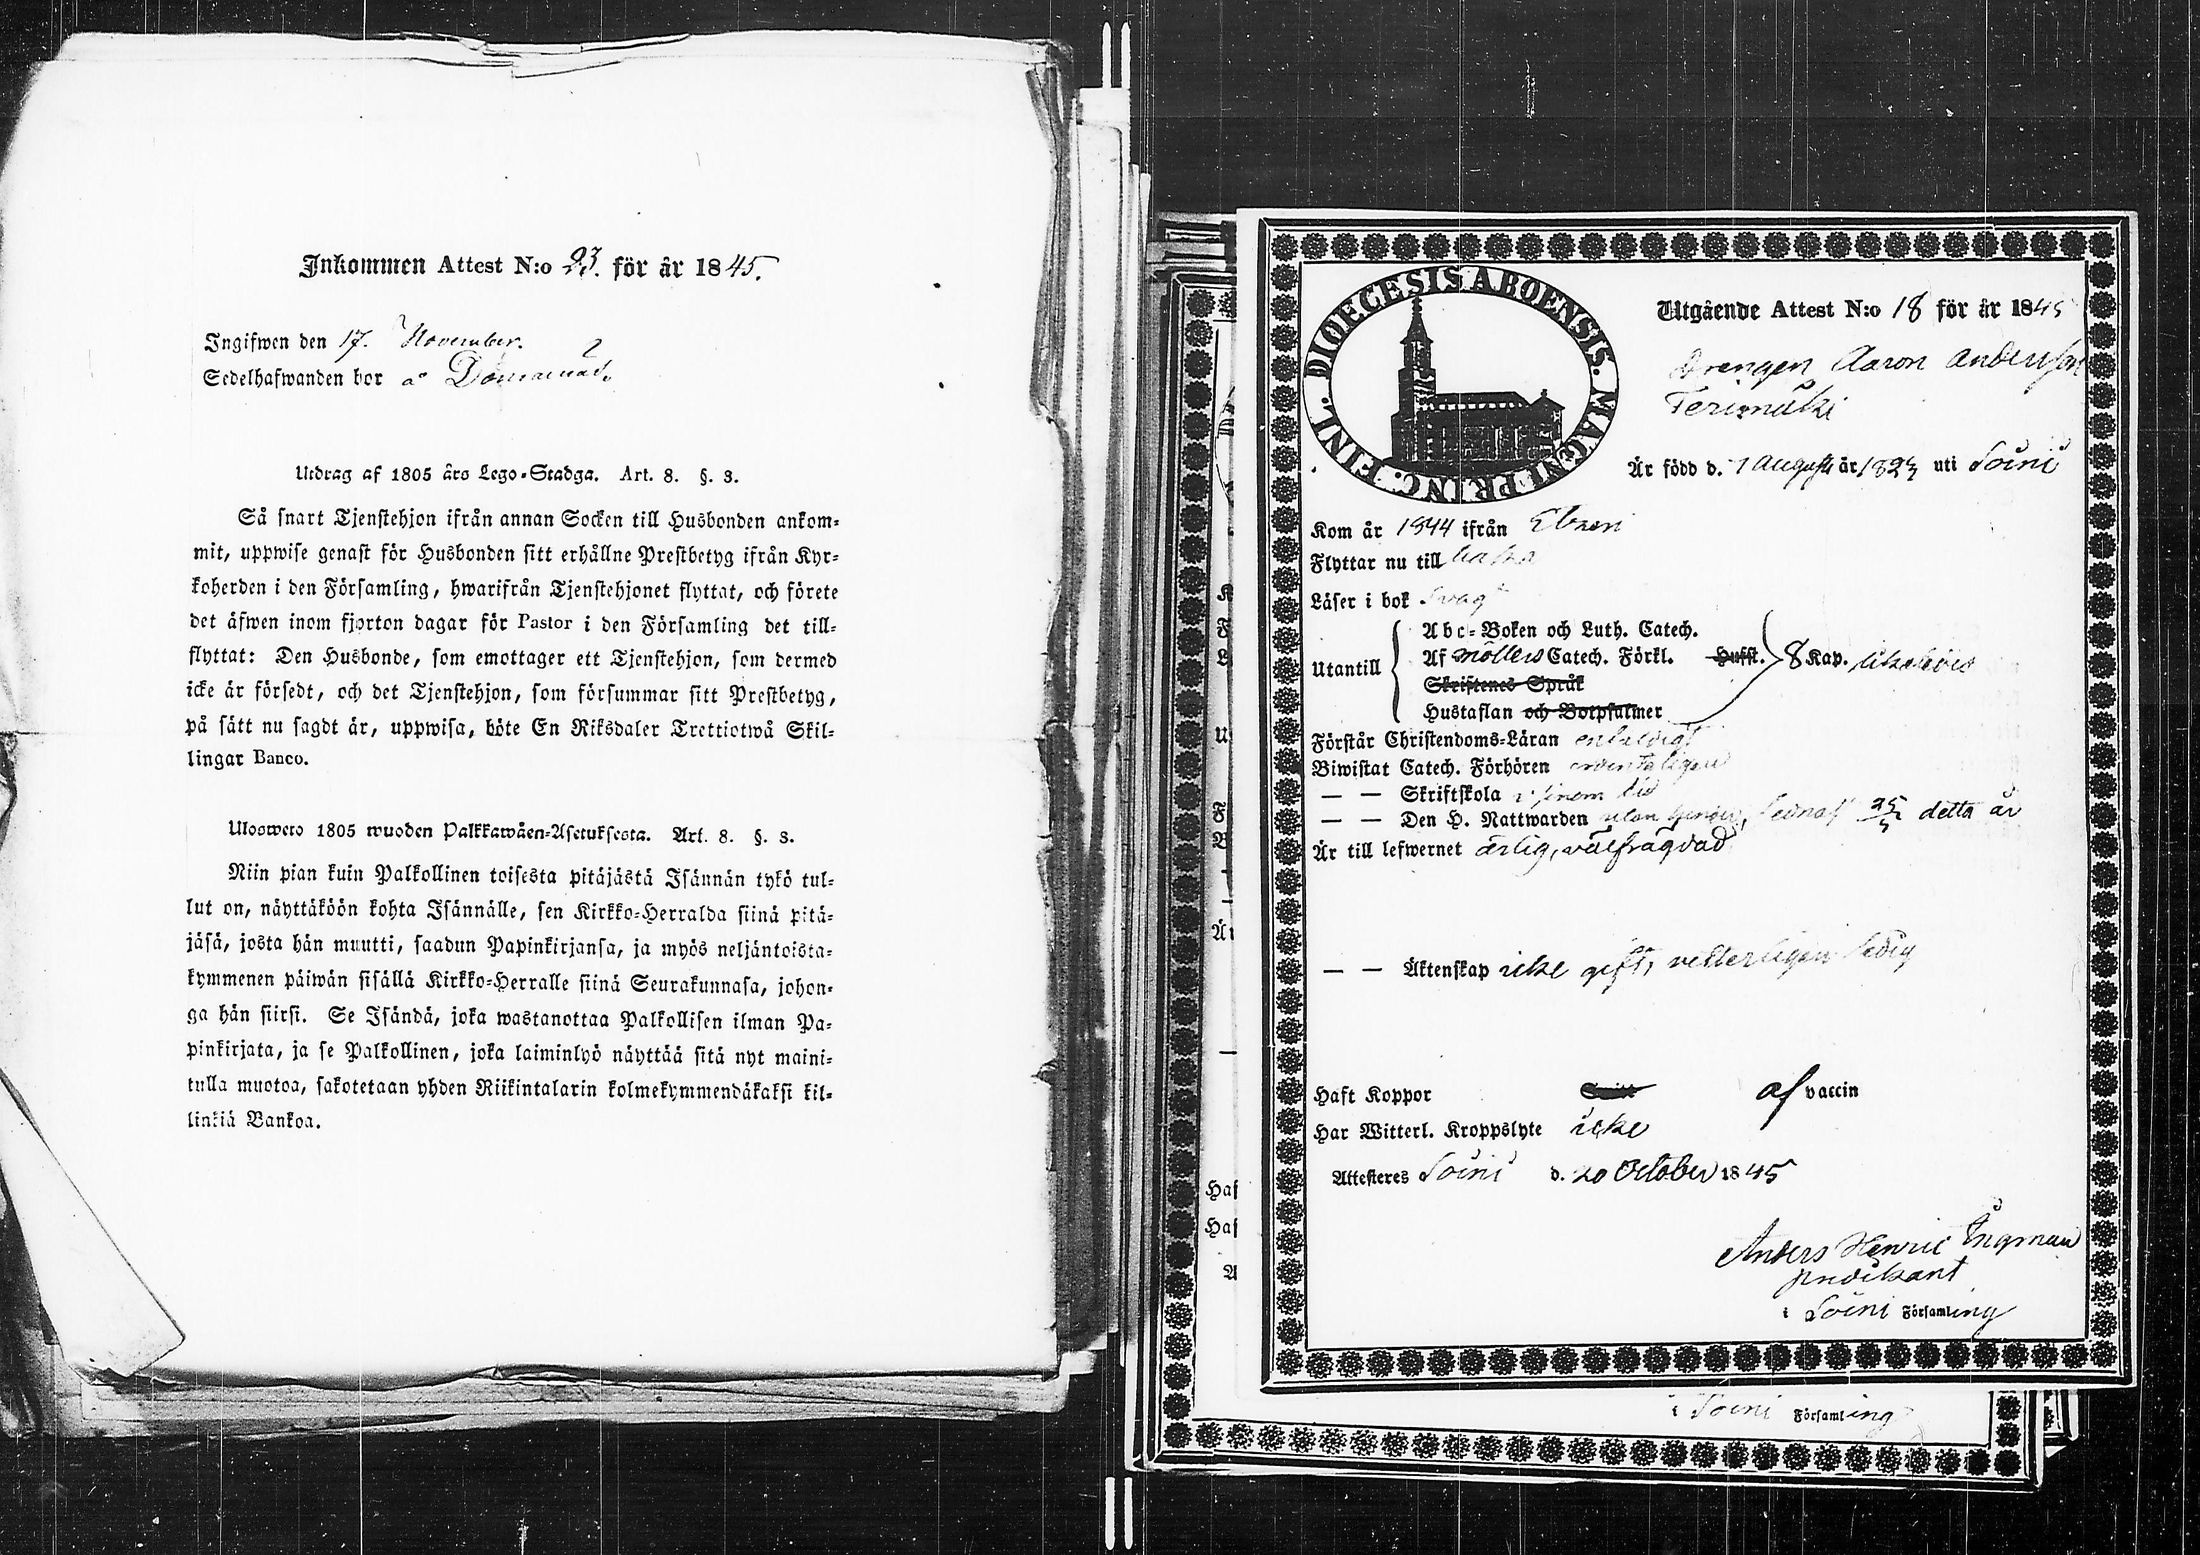 Inkommen Attest N:o 23. för år 1845.
Ingifwen den 17. November.
Sedelhafwanden bor å
Utdrag af 1805 års Lego-Stadga. Art. 8. §. 3.
Så snart Tjenstehjon ifrån annan Socken till Husbonden ankom-
mit, uppwise genast för Husbonden sitt erhållne Prestbetyg ifrån Kyr-
koherden i den Församling, hwarifrån Tjenstehjonet flyttat, och förete
det äfwen inom fjorton dagar för Pastor i den Församling det till-
flyttat: Den Husbonde, som emottager ett Tjenstehjon, som dermed
icke är försedt, och det Tjenstehjon, som försummar sitt Prestbetyg,
på sätt nu sagdt är, uppwisa, böte En Riksdaler Trettiotwå Skil-
lingar Banco.
Ulosweto 1805 wuoden Palkkawäen-Asetuksesta. Art. 8. §. 3.
Niin pian kuin Palkollinen toisesta pitäjästä Isännän tykö tul-
lut on, näyttäköön kohta Isännälle, sen Kirkko-Herralda siinä pitä-
jäsä, josta hän muutti, saadun Papinkirjansa, ja myös neljäntoista-
kymmenen päiwän sisällä Kirkko-Herralle siinä Seurakunnasa, johon-
ga hän siirsi. Se Isändä, joka wastanottaa Palkollisen ilman Pa-
pinkirjata, ja se Palkollinen, joka laiminlyö näyttää sitä nyt maini-
tulla muotoa, sakotetaan yhden Riikintalarin kolmekymmendäkaksi kil-
linkiä Bankoa.
FINL. DIOECESIS ABOENSIS. MAGNI PRINC.
Utgående Attest N:o 18 för år 1845
Drengen Aaron Andersson
Terimäki
Är född d. 1 Augusti år 1823 uti Soini
Kom år 1844 ifrån
Flyttar nu till Wasa
Läser i bok Svagt
Utantill
Abc-Boken och Luth. Catech.
Af Möllers Catech. Förkl. Husst. 8 Kap. likaledes
Skriftenes Språk
Hustaflan och Botpsalmer
Förstår Christendoms-Läran enfaldigt
Biwistat Catech. Förhören ordenteligen
— — Skriftskola i sinom tid
— — Den H. Nattwarden utan hinder, sednast 25/5 detta år
Är till lefwernet ärlig, välfrägdad
— — Äktenskap icke gift, vetterligen ledig
Haft Koppor Smitt af vaccin
Har Witterl. Kroppslyte icke
Attesteres Soini d. 20 October 1845
Anders Henric Ingman
predikant
i Soini Församling
i Soini Församling